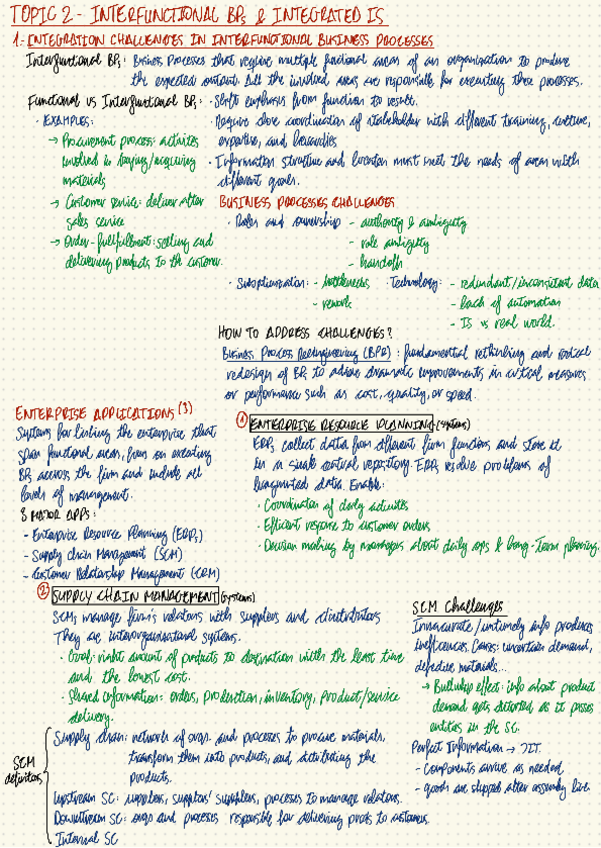 TOPIC 2 - INTERFUNCTIONAL BPs & INTEGRATED IS
1.- INTEGRATION CHALLENGES IN INTERFUNCTIONAL BUSINESS PROCESSES
Interfunctional BPs: Business Processes that require multiple functional areas of an organization to produce
the expected output. All the involved areas are responsible for executing those processes.
Functional vs Interfunctional BPs: · Shift emphasis from function to result.
· EXAMPLES:
→ Procurement process: activities
involved in buying/acquiring
materials
→ Customer service: deliver after
sales service
→ Order-fullfillment: selling and
delivering products to the customer.
· Require close coordination of stakeholder with different training, culture,
expertise, and
· Information structure and location must meet the needs of areas with
different goals.
BUSINESS PROCESSES CHALLENGES
· Roles and ownership - authority & ambiguity
- role ambiguity
- handoffs
· Suboptimization: - bottlenecks
- rework
· Technology: - redundant/inconsistent data
- lack of automation
- IS vs real world.
HOW TO ADDRESS CHALLENGES?
Business Process Reengineering (BPR): fundamental rethinking and radical
redesign of BPs to achieve dramatic improvements in critical measures
of performance such as cost, quality, or speed.
ENTERPRISE APPLICATIONS (3)
Systems for linking the enterprise that
span functional areas, focus on executing
BPs accross the firm and include all
levels of management.
3 MAJOR APPS:
- Enterprise Resource Planning (ERPs)
- Supply chain Management (SCM)
- Customer Relationship Management (CRM)
① ENTERPRISE RESOURCE PLANNING (systems)
ERPs collect data from different firm functions and store it
in a single central repository. ERPs resolve problems of
fragmented data. Enable:
· Coordination of daily activites
· Efficient response to customer orders
· Decision making by managers about daily ops & long-term planning.
② SUPPLY CHAIN MANAGEMENT (systems)
SCMs manage firm's relations with suppliers and distributors
They are interorganisational systems.
· Goal: right amount of products to destination with the least time
and the lowest cost.
· Shared information: orders, production, inventory, product/service
delivery.
SCM definitions
Supply chain: network of orgs. and process to procure materials,
transform them into products, and distributing the
products.
Upstream SC: suppliers, suppliers' suppliers, process to manage relations.
Downstream SC: orgs and process responsible for delivering prods to customers.
Internal SC
SCM Challenges
Innacurate/untimely info produces
inefficiences. Causes: uncertain demand,
defective materials...
→ Bullwhip effect: info about product
demand gets distorted as it passes
entities in the SC.
Perfect Information → JIT.
- Components arrive as needed
- goods are shipped after assembly line